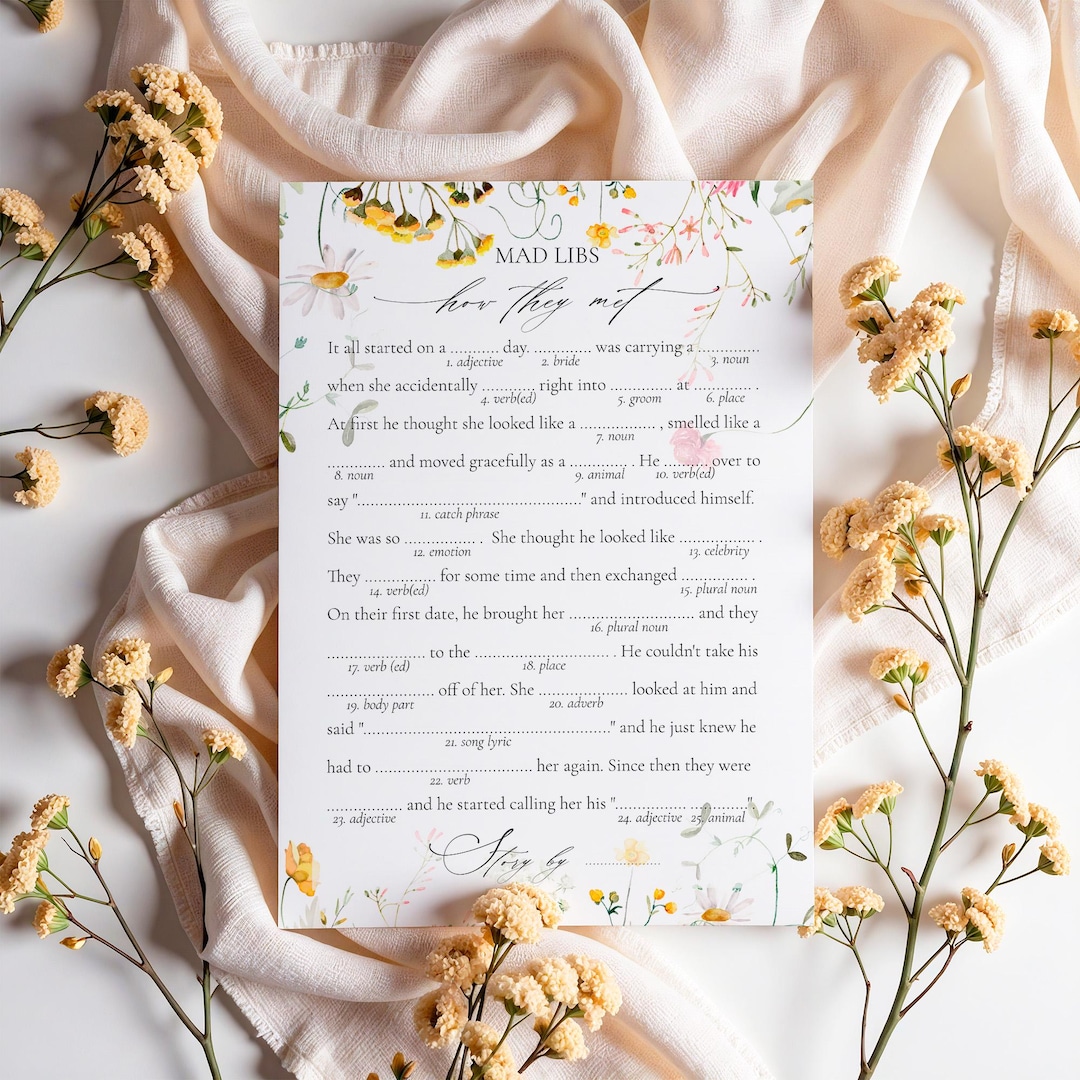 MAD LIBS
how they met
It all started on a ............ day. .............. was carrying a ...............
1. adjective 2. bride 3. noun
when she accidentally ............. right into ............... at .............. .
4. verb(ed) 5. groom 6. place
At first he thought she looked like a .................. , smelled like a
7. noun
.............. and moved gracefully as a .............. . He ........... over to
8. noun 9. animal 10. verb(ed)
say "......................................................" and introduced himself.
11. catch phrase
She was so ................. . She thought he looked like ................... .
12. emotion 13. celebrity
They ................. for some time and then exchanged .................. .
14. verb(ed) 15. plural noun
On their first date, he brought her .............................. and they
16. plural noun
........................ to the ................................ . He couldn't take his
17. verb (ed) 18. place
.......................... off of her. She ..................... looked at him and
19. body part 20. adverb
said "............................................................" and he just knew he
21. song lyric
had to ...................................... her again. Since then they were
22. verb
.................. and he started calling her his "................. ..............."
23. adjective 24. adjective 25. animal
Story by ....................